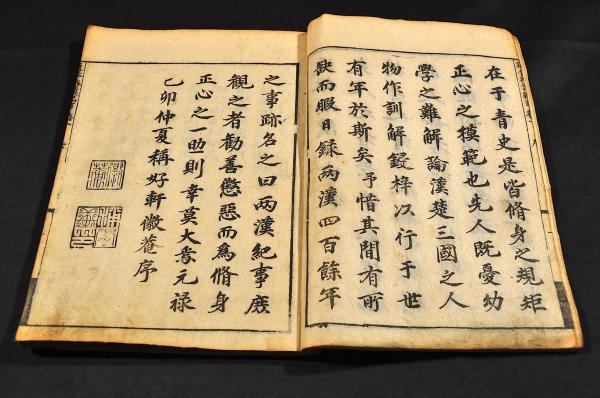 在于青史是皆脩身之規矩
正心之模範也先人既憂幼
學之難解論漢楚三國之人
物作訓解鋟梓以行于世
有年於斯矣予惜其間有所
缺而暇日録兩漢四百餘年
之事跡名之曰兩漢紀事庶
觀之者勸善懲惡而為脩身
正心之一助則幸莫大焉元禄
乙卯仲夏稱好軒徽菴序